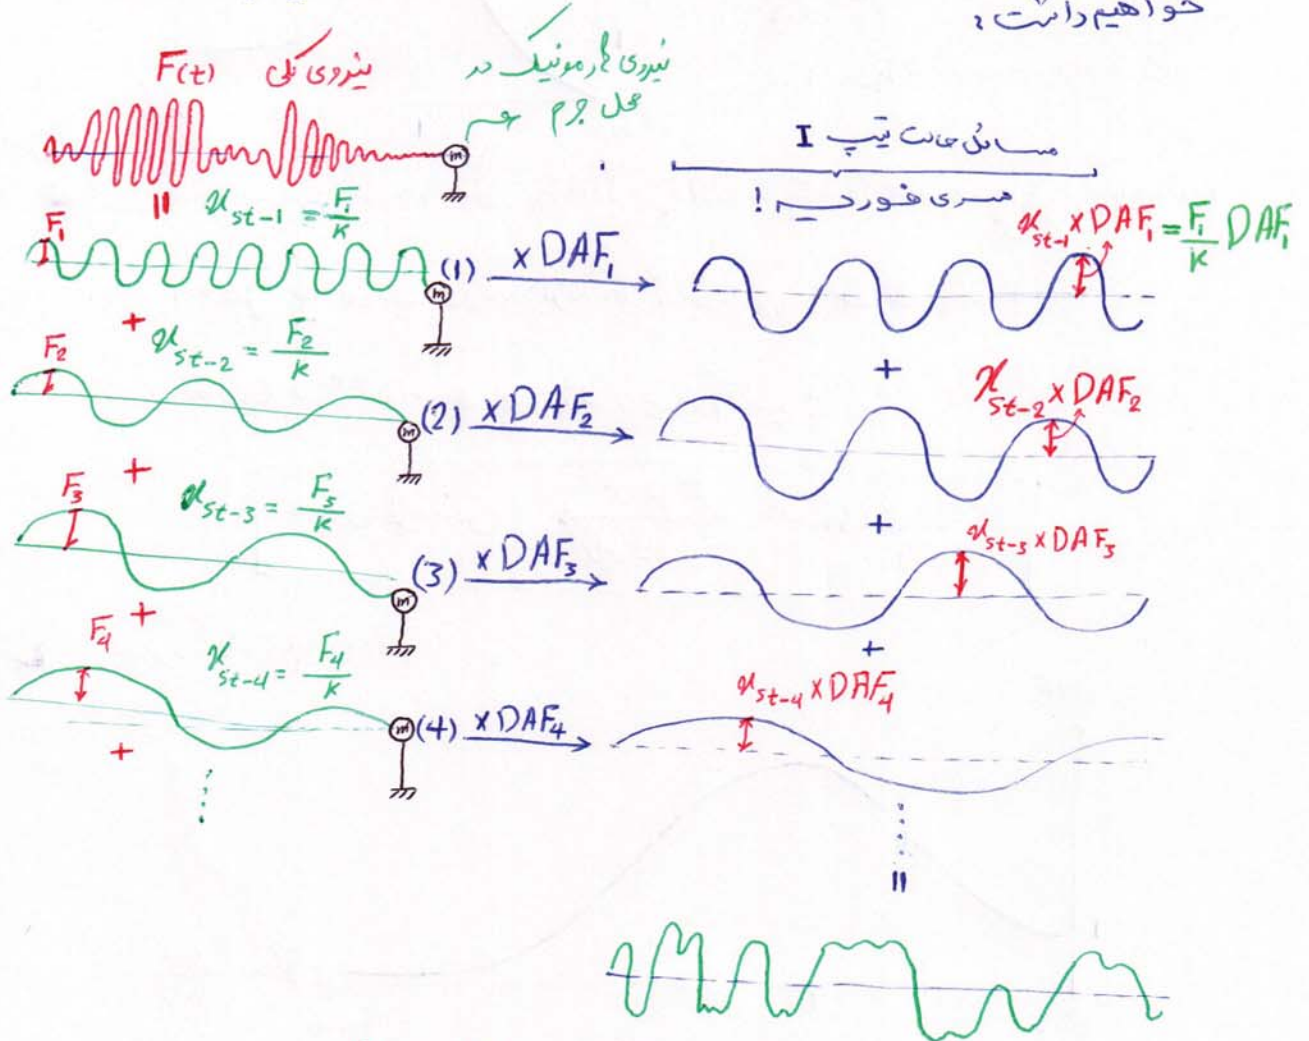 خواهیم داشت:
F(t) نیروی کلی
نیروی هارمونیک در
محل جرم
مسائل حالت تیپ I
سری فوریه!
=
F₁
x_st-1 = F₁/K
(1) ×DAF₁
x_st-1 × DAF₁ = F₁/K DAF₁
+
+
F₂
x_st-2 = F₂/K
(2) ×DAF₂
x_st-2 × DAF₂
+
+
F₃
x_st-3 = F₃/K
(3) ×DAF₃
x_st-3 × DAF₃
+
+
F₄
x_st-4 = F₄/K
(4) ×DAF₄
x_st-4 × DAF₄
+
=
m
m
m
m
m